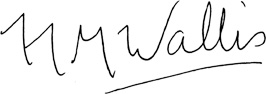 H M Wallis